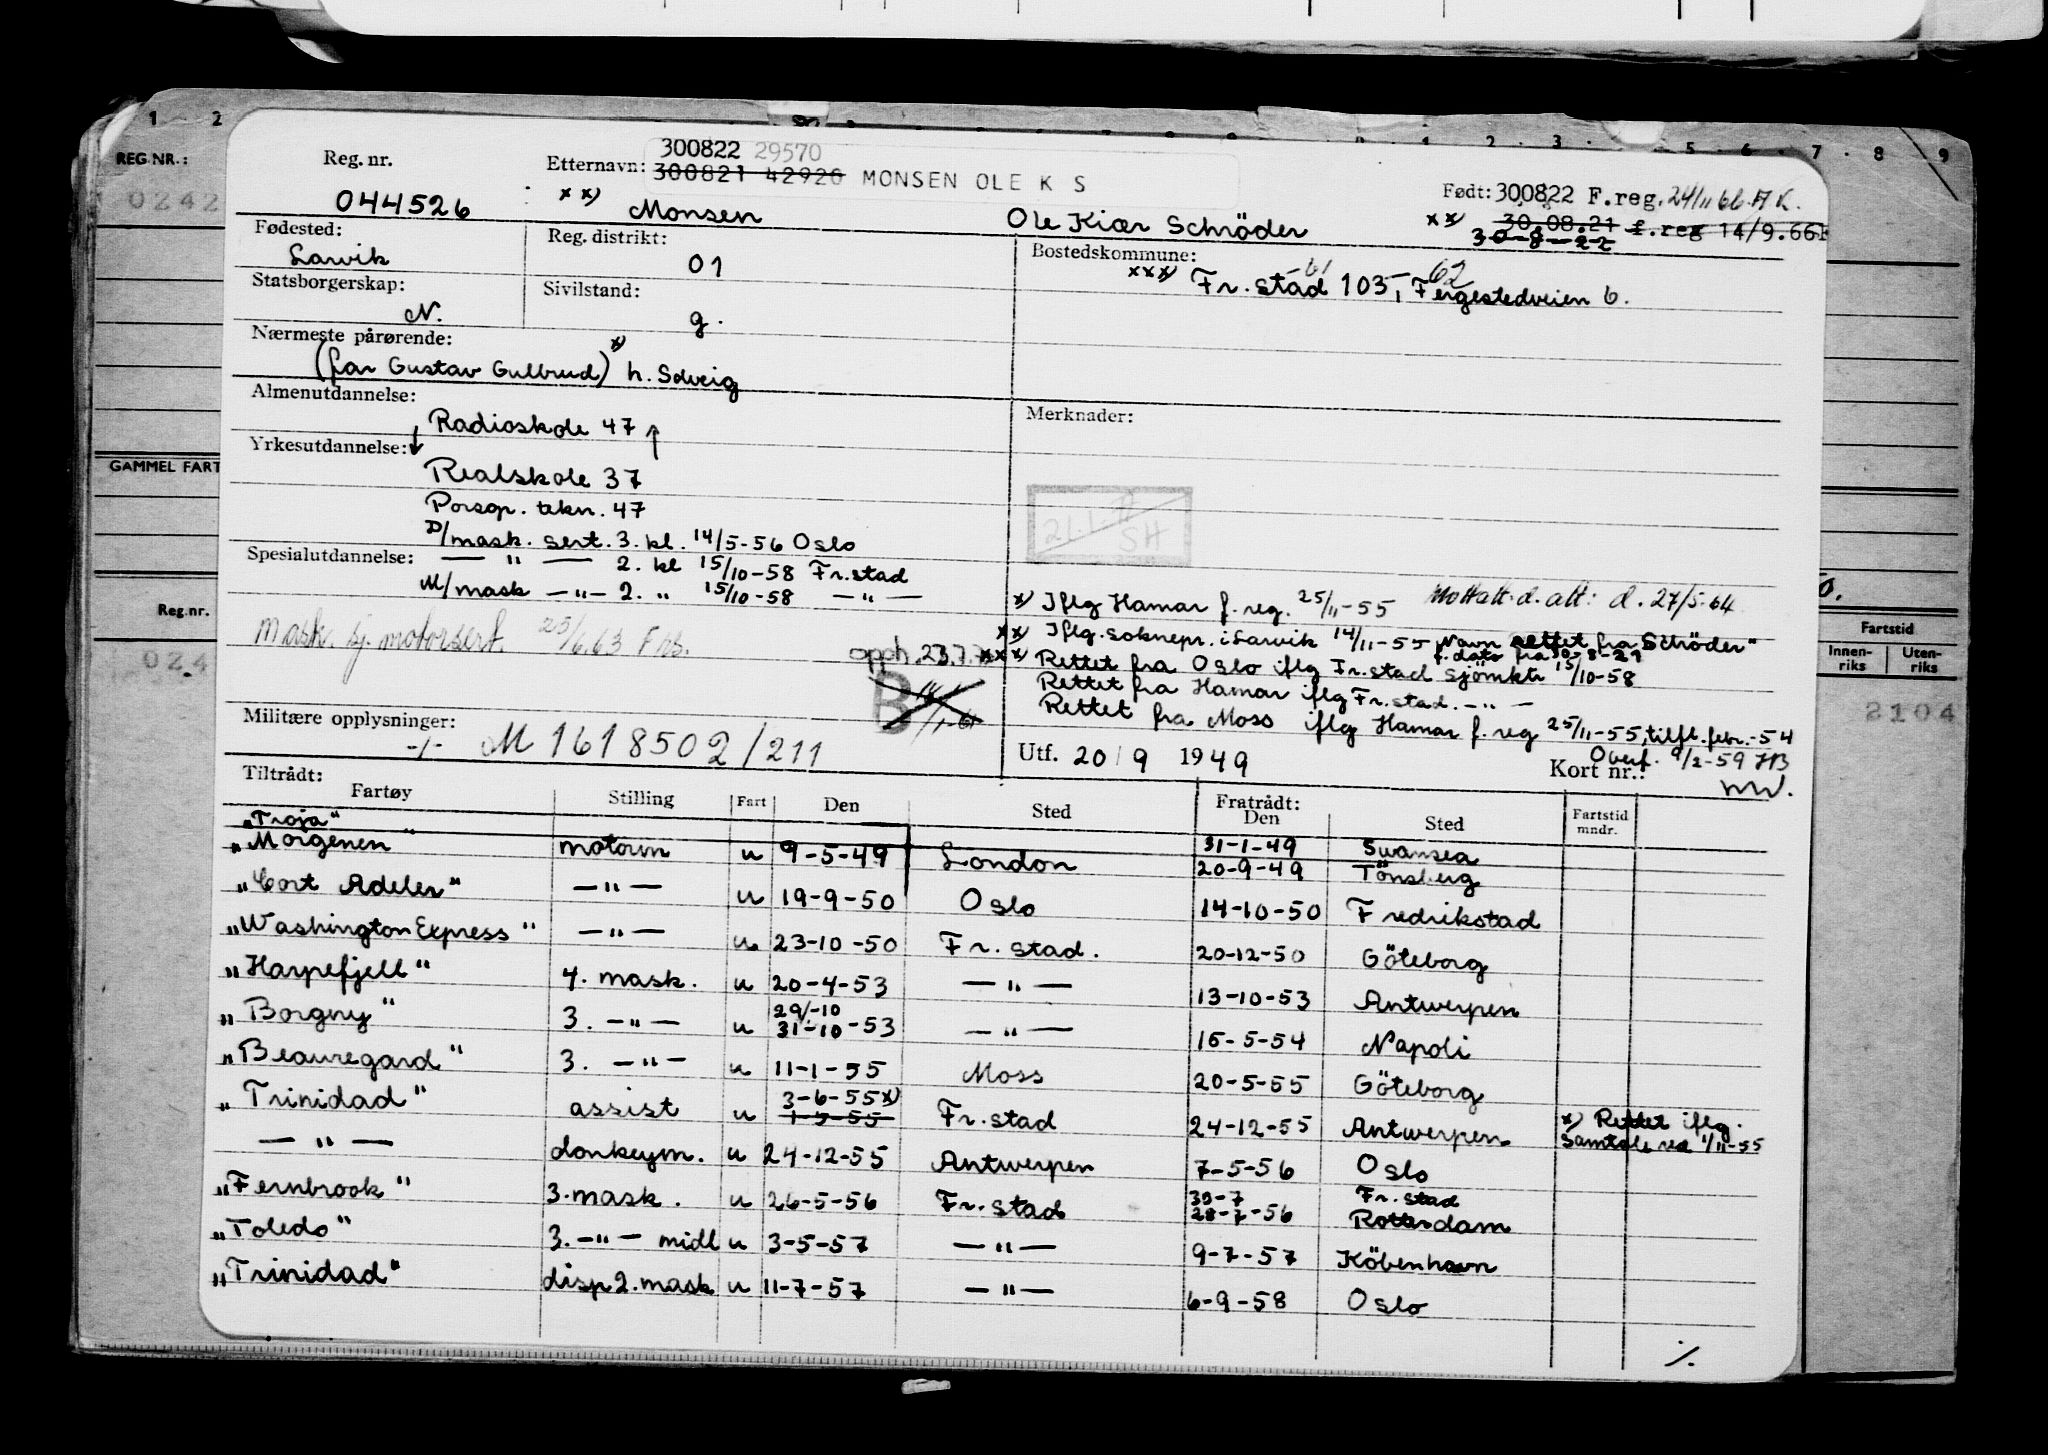 1 2 2 3 5 6 7 8 9
REG.NR.:
0242
Reg. nr.
044526
Etternavn: 300822 29570
300821 42920 MONSEN OLE K S
xx) Monsen Ole Kiær Schröder
Født: 300822 F.reg. 24/11 66 A K.
xx) 30.08.21 f.reg 14/9.66
30-8-22
Fødested:
Larvik
Reg. distrikt:
01
Bostedskommune:
xxx) Fr.stad 103, Fergestedveien 6.
-61 62
Statsborgerskap:
N.
Sivilstand:
g.
Nærmeste pårørende:
(far Gustav Gulbrud) x) h. Solveig
Almenutdannelse:
Radioskole 47
Merknader:
Yrkesutdannelse:
Realskole 37
GAMMEL FART
Porsgr. tekn. 47
D/mask. sert. 3. kl. 14/5-56 Oslo
21.1.77
SH
Spesialutdannelse:
— " — 2. kl 15/10-58 Fr.stad
M/mask —"— 2. " 15/10-58 —"—
mask. kj. motorsert. 25/6.63 Fks.
Reg.nr.
024
x) Iflg Hamar f. reg. 25/11-55 Mottatt d. att: d. 27/5-64
xx) Iflg. soknepr. i Larvik 14/11-55 Navn rettet fra Schröder"
f. dato fra 30-8-21
opph. 23.7.7
xxx) Rettet fra Oslo iflg Fr.stad sjömktr 15/10-58
Rettet fra Hamar iflg Fr.stad. —"—
Rettet fra Moss iflg Hamar f. reg 25/11-55, tilfl. febr.-54
B
Fartstid
Innen-riks Uten-riks
2104
Militære opplysninger:
-/- M 1618502/211
Utf. 20/9 1949
Overf. 9/2-59 HB
Kort nr.:
Tiltrådt:
Fartøy Stilling Fart Den Sted
Fratrådt:
Den Sted Fartstid mndr.
"Troja" 31-1-49 Swansea
"Morgenen" motorm u 9-5-49 London 20-9-49 Tönsberg
"Cort Adeler" —"— u 19-9-50 Oslo 14-10-50 Fredrikstad
"Washington Express" —"— u 23-10-50 Fr. stad. 20-12-50 Göteborg
"Harpefjell" 4. mask. u 20-4-53 —"— 13-10-53 Antwerpen
"Borgny" 3. —"— u 29/-10 31-10-53 —"— 15-5-54 Napoli
"Beauregard" 3. —"— u 11-1-55 Moss 20-5-55 Göteborg
"Trinidad" assist u 3-6-55 x) 1-5-55 Fr.stad 24-12-55 Antwerpen x) Rettet iflg. Samtale ved 1/11-55
— " — donkeym. u 24-12-55 Antwerpen 7-5-56 Oslo
"Fernbrook" 3. mask. u 26-5-56 Fr.stad 30-7 28-7-56 Fr.stad Rotterdam
"Toledo" 3. —"— midl u 3-5-57 —"— 9-7-57 Köbenhavn
"Trinidad" disp 2. mask u 11-7-57 —"— 6-9-58 Oslo
%